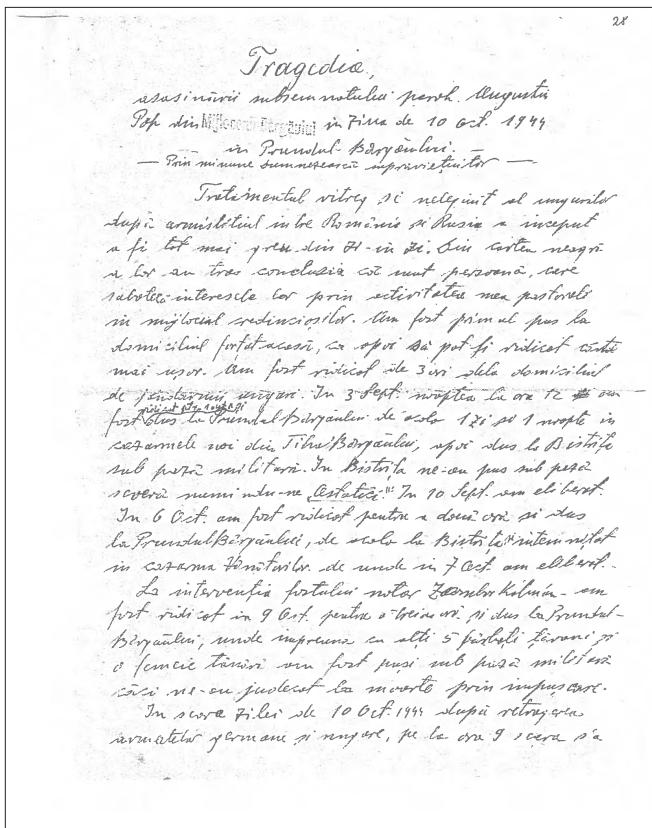 28
Tragedia,
asasinării subsemnatului paroh. Augustin
Pop din Mijlocenii Bârgăului in ziua de 10 oct. 1944
in Prundul-Bârgăului.
— Prin minune dumnezeească supraviețuitor —
Tratamentul vitreg si nelegiuit al ungurilor
după armistitiul intre România si Rusia a inceput
a fi tot mai greu din zi-in zi. Din cartea neagră
a lor au tras concluzia că sunt persoană, care
sabotéză interesele lor prin activitatea mea pastorală
in mijlocul credinciosilor. Am fost primul pus la
domiciliul forțat acasă, ca apoi să pot fi ridicat cât
mai ușor. Am fost ridicat de 3 ori dela domiciliul
de jandarmii ungari. In 3 Sept. noaptea la ora 12 am
fost dus la Prundul Bârgăului de acolo 1 zi si 1 noapte in
cazarmele noi din Tiha Bârgăului, apoi dus la Bistrița
sub pază militară. In Bistrița ne-au pus sub pază
severă numindu-ne „Ostatici". In 10 Sept. am eliberat.
In 6 Oct. am fost ridicat pentru a doua oră si dus
la Prundul Bârgăului, de acolo la Bistrița intemnițat
in cazarma Vânătorilor de unde in 7 Oct. am eliberat.-
La intervenția fostului notar Zsombor Kálmán - am
fost ridicat in 9 Oct. pentru a treia oră si dus la Prundul-
Bârgăului, unde impreuna cu alți 5 bărbați țărani și
o femeie tânări am fost puși sub pază militară
căci ne-au judecat la moarte prin impușcare.
In seara zilei de 10 Oct. 1944 după retragerea
armatelor germane si ungare, pe la ora 9 seara s'a